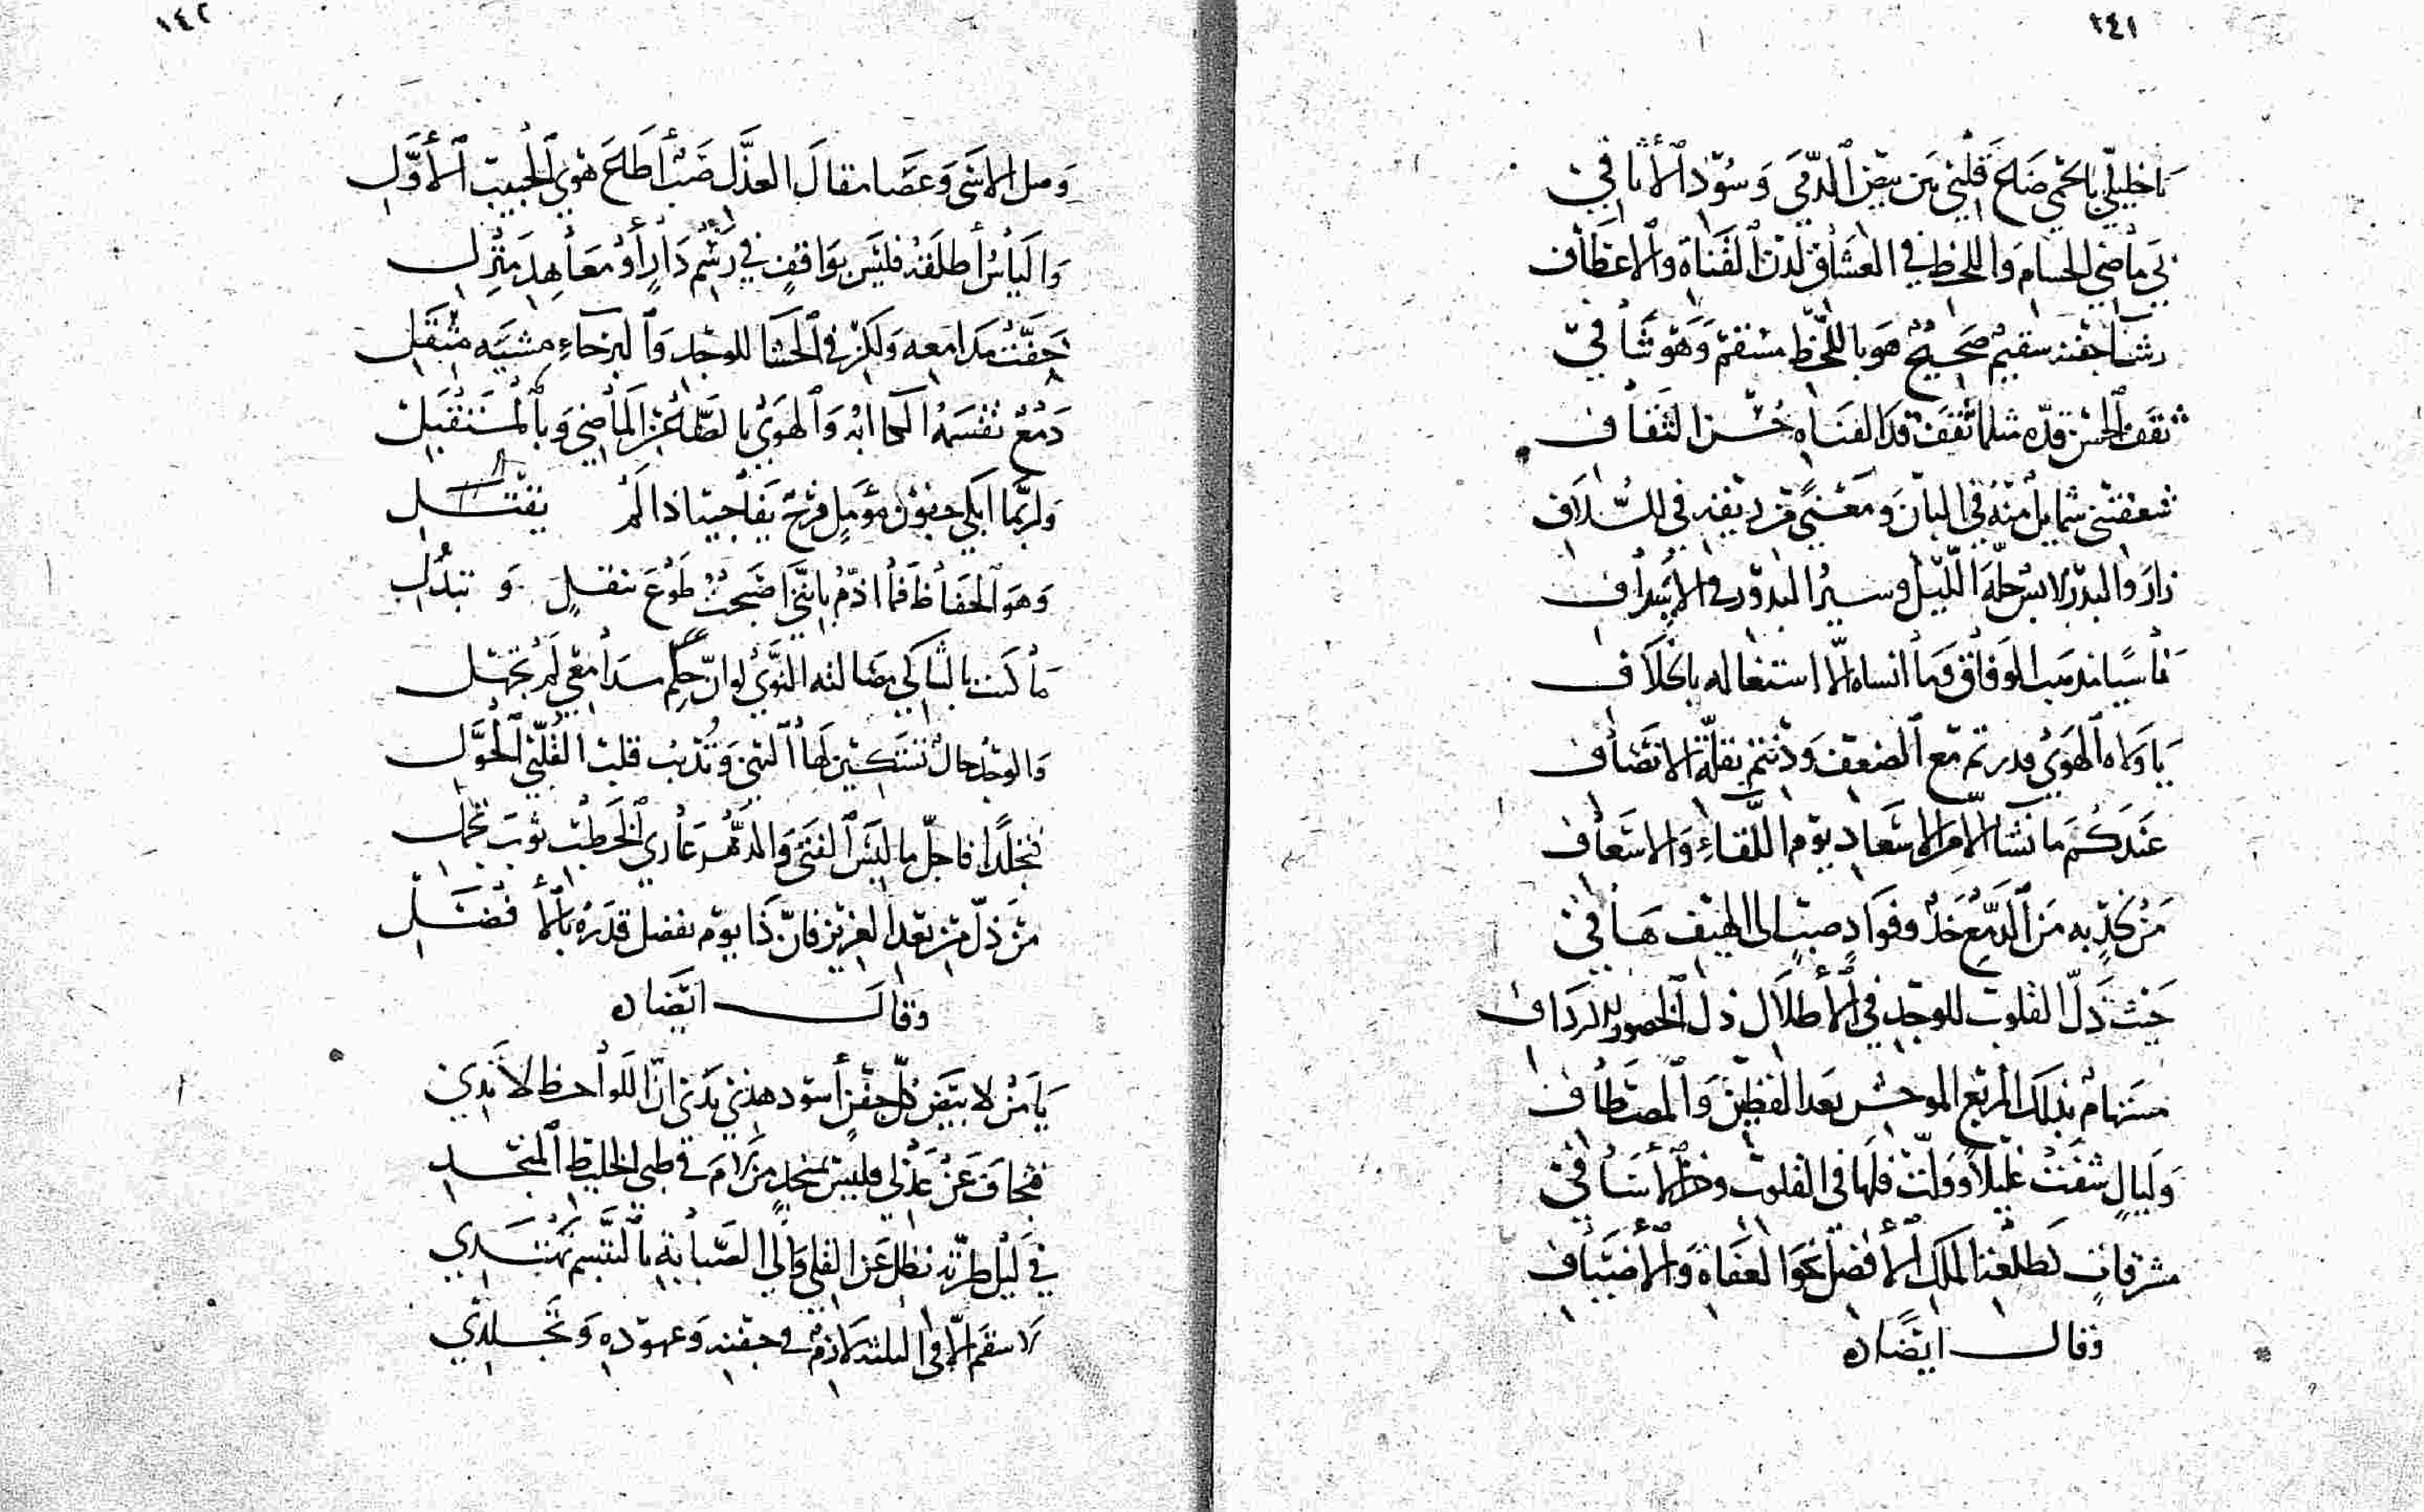 ١٤١
يا خليليّ بالحمى ضاع قلبي بين بيض الدّمى وسود الأثافي
بي ماضي الحسام واللحظ في العشاق لدن القناة والاعطاف
رشأ جفنه سقيم صحيح هو باللحظ مسقم وهو شافي
ثقف الحسن قدّه مثلما تثقف قد القناه حسن الثقاف
شغفتني شمايل منه في البان ومعنى من ريقه في السلاف
زار والبدر لابس حلة الليل وسير البدور في الاسداف
ناسيا مذهب الوفاق وما انساه الا اشتغاله بالخلاف
يا ولاه الهوى قدرتم مع الضعف ودنتم بقلّة الانصاف
عندكم ما نشا الا من الاسعاد يوم اللقاء والاسعاف
من لخدّ به من الدمع خدّ وفواد صبّ الى الهيف هافي
حيث ذلّ القلوب للوجد في الأطلال ذل الخصور للارداف
مستهام بذلك المربع الموحش بعد القطين والمصطاف
وليال شفت غليلا وولّت فلها في القلوب وخز الأشافي
مشرقات كطلعة الملك الأفضل نحو العفاة والأضياف
وقال ايضاه
١٤٢
وصل الاسى وعصا مقال العذّل صبّ أطاع هوى الحبيب الأوّل
والياس أطلقه فليس بواقف في رسم دار أو معاهد منزل
خفّت مدامعه ولكن في الحشا للوجد والبرحاء مشية مثقل
دمع نفسه الجآبه والهوى بالماضي وبالمستقبل
ولربّما ابكى جفون مؤمل فرح يفاجيه اذا لم يقتل
وهو الحفاظ فما اذمّ بانّني اضبحت طوع تنقل و تبدّل
ما كنت بالباكي ضالته النوى لو انّ حكم مدامعي لم تجهل
والوجد حال تستكين لها النهى وتذيب قلب القلّب الحوّل
فتجلّدا فاجلّ ما لبس الفتى والدهر عاري الخطب ثوب تجمّل
من ذلّ من بعد العزيز فانّ ذا يوم بفضل قدره بالأفضل
وقال ايضاه
يا من لابيض كلّ جفن أسود هذي يدى انّ اللواحظ لا تدي
فتجاف عن عذلي فليس بمنجد من رام في ظبي الخليط المنجد
في ليل طرّته نظل عن القلى والى الصبابة بالتبسم نهتدي
لا سقم الا في البلنه لازم في جفنه وعهوده وتجلدي